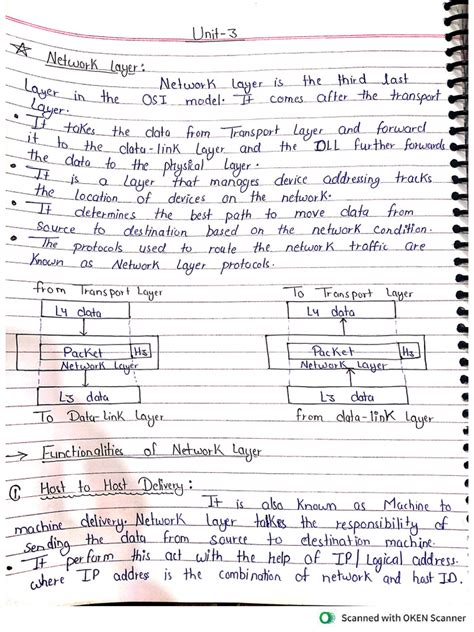 Unit-3
Network Layer:
Network Layer is the third last
Layer in the OSI model. It comes after the transport
Layer.
It takes the data from Transport Layer and forward
it to the data-link Layer and the DLL further forwards
the data to the physical Layer.
It is a Layer that manages device addressing tracks
the location of devices on the network.
It determines the best path to move data from
Source to destination based on the network condition.
The protocols used to route the network traffic are
Known as Network Layer protocols.
from Transport Layer
To Transport Layer
L4 data
L4 data
Packet H3
Packet H3
Network Layer
Network Layer
L3 data
L3 data
To Data-Link Layer
from data-link Layer
→ Functionalities of Network Layer
① Host to Host Delivery:
It is also Known as Machine to
machine delivery. Network Layer takes the responsibility of
Sending the data from source to destination machine.
It perform this act with the help of IP/Logical address.
where IP address is the combination of network and host ID.
Scanned with OKEN Scanner